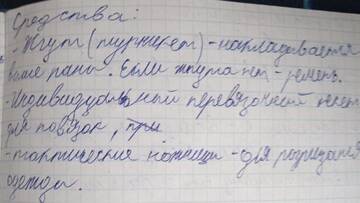 Средства:
- Жгут (турникет) - накладывается
выше раны. Если жгута нет - ремень.
- Индивидуальный перевязочный пакет
для повязок, при
- тактические ножницы - для разрезания
одежды.